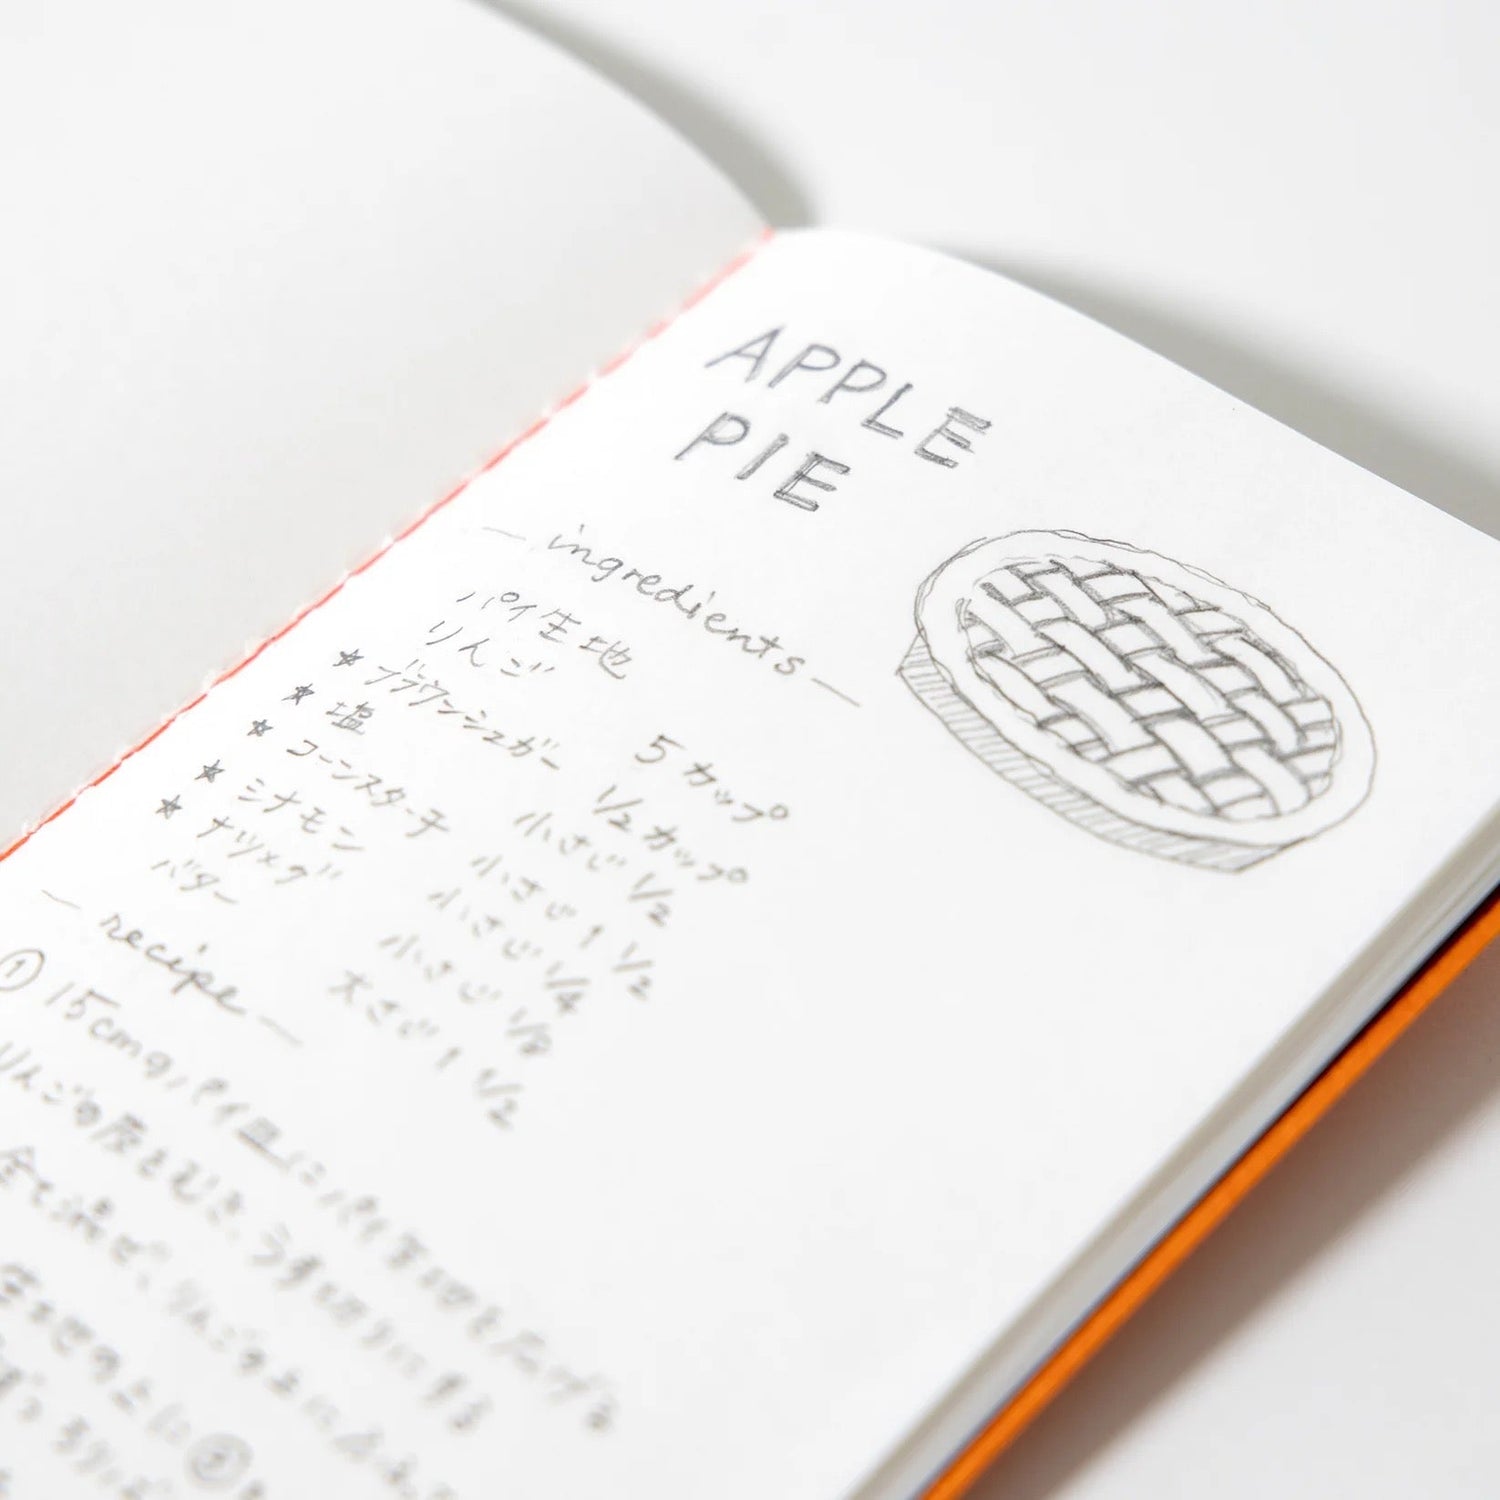 APPLE
PIE
— ingredients —
パイ生地
りんご 5カップ
★ブラウンシュガー 1/2カップ
★塩 小さじ 1/2
★コーンスターチ 小さじ 1 1/2
★シナモン 小さじ 1/4
★ナツメグ 小さじ 1/8
バター 大さじ 1 1/2
— recipe —
① 15cmのパイ皿に、パイ生地を広げる
りんごの皮をむき、うす切りにする
全て混ぜ、りんごの上に
生地の上に②